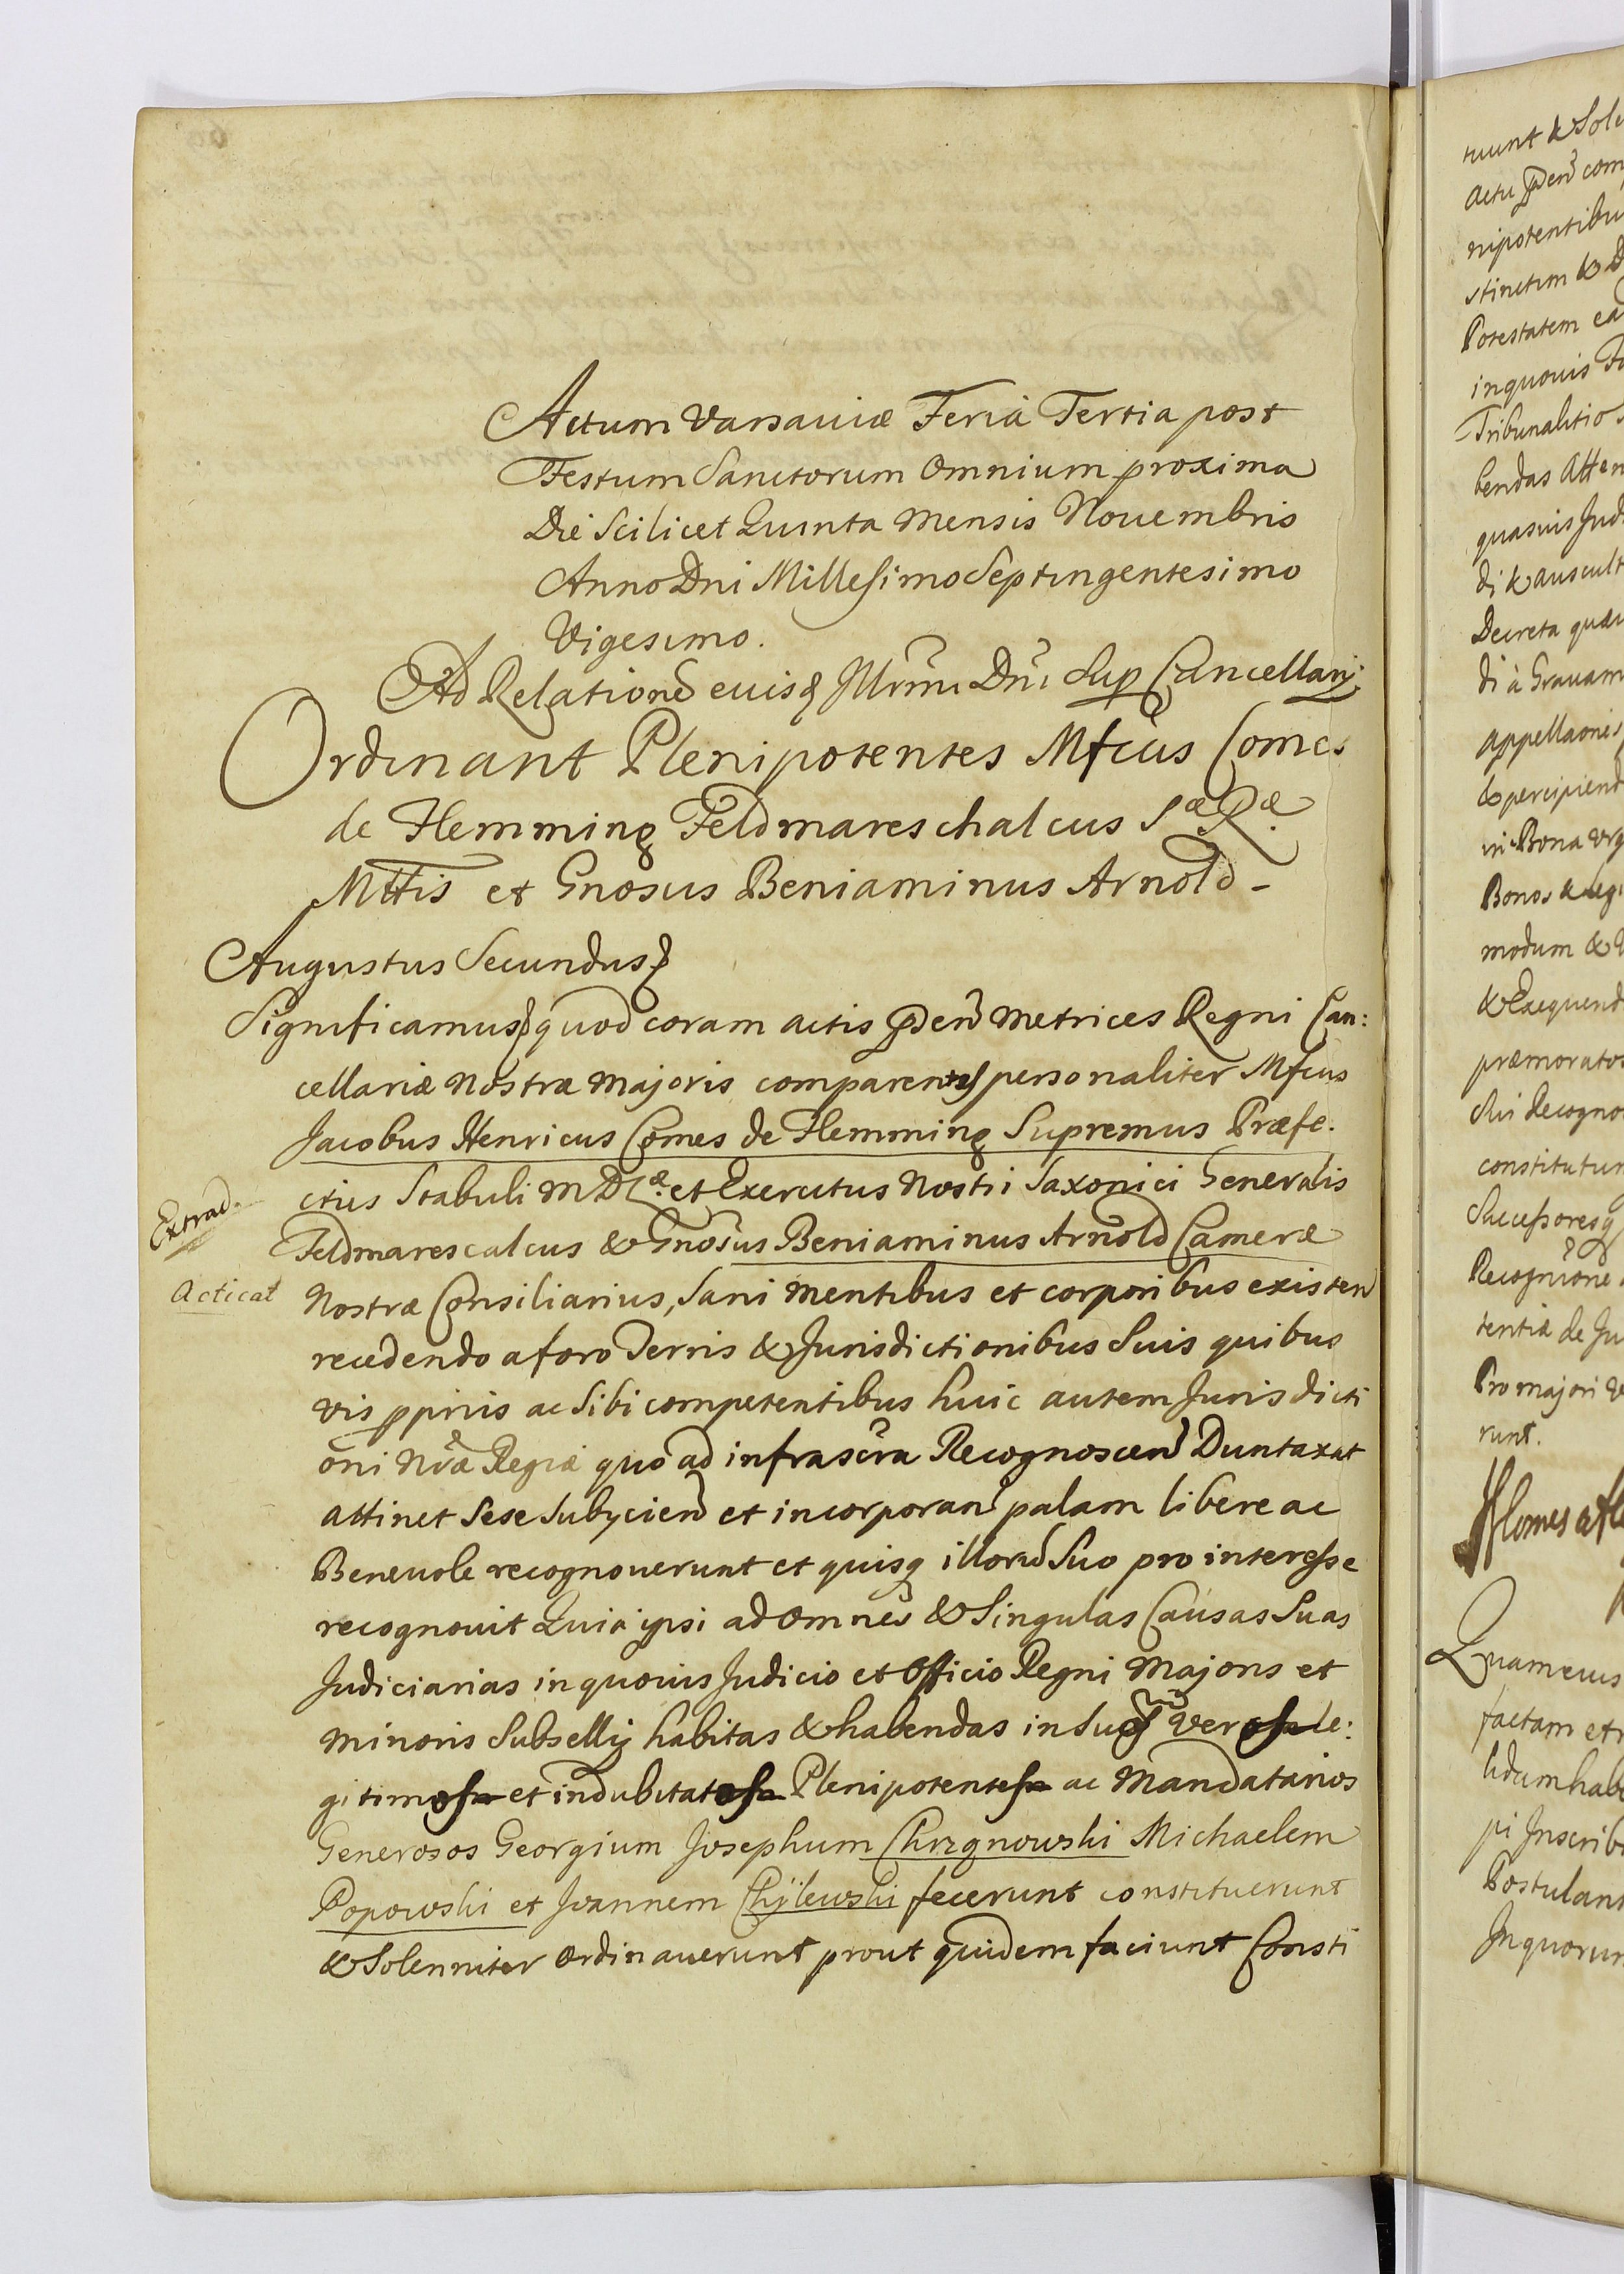 Actum Varsaviæ Feria Tertia post
Festum Sanctorum Omnium proxima
Die Scilicet Quinta Mensis Nouembris
Anno Dni Millesimo Septingentesimo
Vigesimo.
Ad Relatione eiusd Illrmi Dni Sup Cancellarij
Ordinant Plenipotentes Mfcus Comes
de Flemming Feldmareschalcus Sæ Ræ
Mttis et Gnosus Beniaminus Arnold -
Augustus Secundus
Significamus quod coram actis pden Metrices Regni Can:
cellariæ Nostræ Majoris comparentes personaliter Mfcus
Jacobus Henricus Comes de Flemming Supremus Præfe:
ctus Stabuli M D Læ et Exercitus Nostri Saxonici Generalis
Feldmarescalcus & Gnosus Beniaminus Arnold Cameræ
Nostræ Consiliarius, Sani Mentibus et corporibus existen
recedendo a foro Terris & Jurisdictionibus Suis quibus
vis ppriis ac Sibi competentibus huic autem Juris dicti
oni Nræ Regiæ quo ad infrascra Recognoscen Duntaxat
attinet Sese Subycien et incorporan palam libere ac
Beneuole recognouerunt et quisq illoru Suo pro interesse
recognouit Quia ipsi ad omnes & Singulas Causas Suas
Judiciarias in quouis Judicio et Officio Regni Majoris et
Minoris Subsellij habitas & habendas in Suos veros le:
gitimos et indubitatos Plenipotentes ac Mandatarios
Generosos Georgium Josephum Chrzgnowski Michaelem
Popowski et Joannem Chÿlewski fecerunt constituerunt
& Solenniter ordinauerunt prout quidem faciunt Consti
Extrad
Acticat
tuunt & Sole
Actu pden com
nipotentibu
stinctim &
Potestatem ea
inquouis
Tribunalitio
bendas Atten
quasuis Jud
di & auscult
Decreta quæu
di à Grauam
appellaonis
& percipiend
in Bona
Bonos & legi
modum &
& Exequend
præmoratos
Sui Recogno
constitutur
Successoresq
Recognione
tentiæ de Ju
Pro majori
runt.
Quam eius
factam et
lidum habe
pi Inscrib
Postulan
In quorum